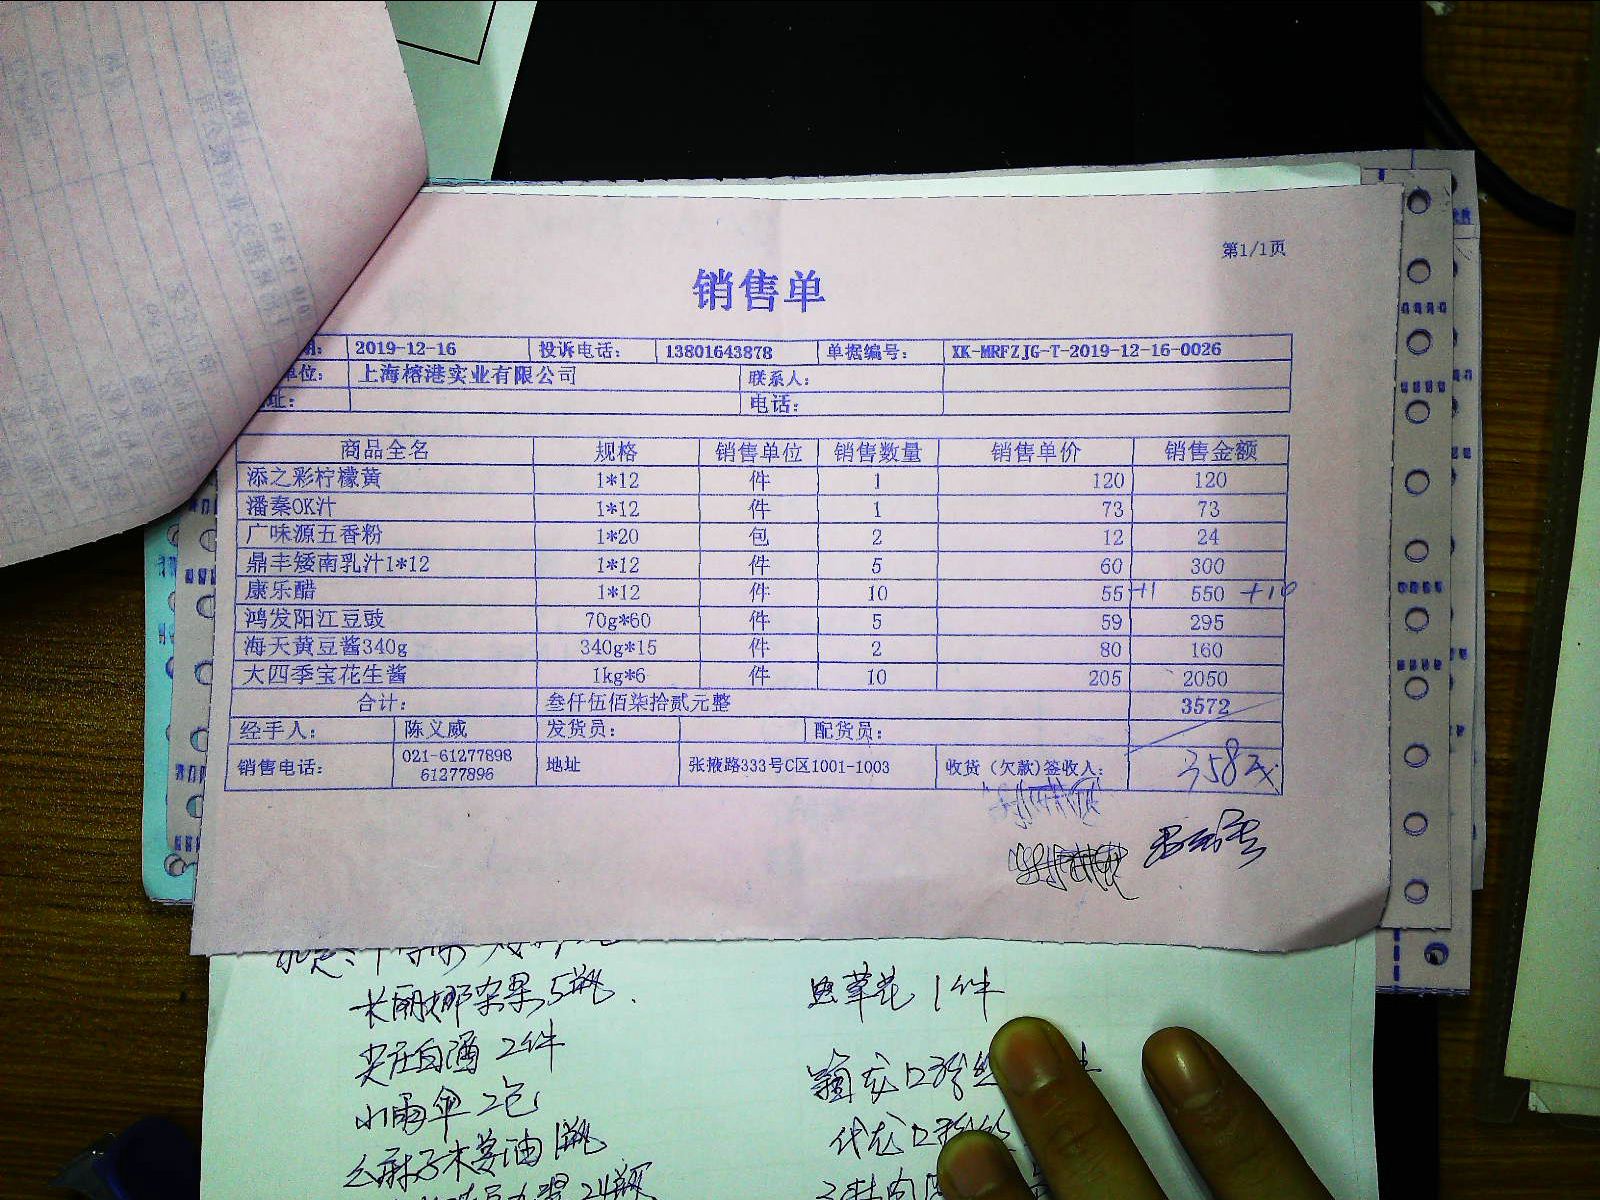 第1/1页
销售单
期: 2019-12-16 投诉电话: 13801643878 单据编号: XK-MRFZJG-T-2019-12-16-0026
单位: 上海榕港实业有限公司 联系人:
址: 电话:
商品全名 规格 销售单位 销售数量 销售单价 销售金额
添之彩柠檬黄 1*12 件 1 120 120
潘秦OK汁 1*12 件 1 73 73
广味源五香粉 1*20 包 2 12 24
鼎丰矮南乳汁1*12 1*12 件 5 60 300
康乐醋 1*12 件 10 55 +1 550 +10
鸿发阳江豆豉 70g*60 件 5 59 295
海天黄豆酱340g 340g*15 件 2 80 160
大四季宝花生酱 1kg*6 件 10 205 2050
合计: 叁仟伍佰柒拾贰元整 3572
经手人: 陈义威 发货员: 配货员:
销售电话: 021-61277898 61277896 地址 张掖路333号C区1001-1003 收货(欠款)签收人:
5瓶
虫草花 1件
尖庄白酒 2件
小雨伞 2包
木姜油 1瓶
24瓶